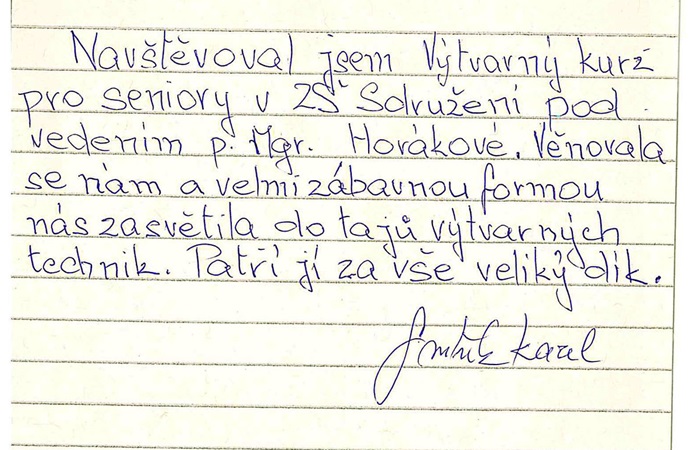 Navštěvoval jsem Výtvarný kurz
pro seniory v ZŠ Sdružení pod
vedením p. Mgr. Horákové. Věnovala
se nám a velmi zábavnou formou
nás zasvětila do tajů výtvarných
technik. Patří jí za vše veliký dík.
Karel